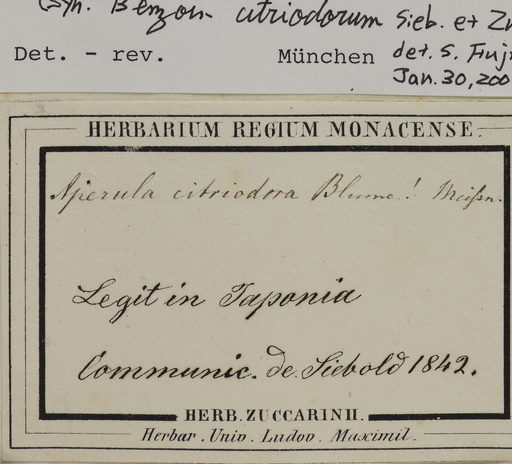 (syn. Benzoin citriodorum Sieb. et Zu
Det. - rev. München det. S. Fuji
Jan. 30, 200
HERBARIUM REGIUM MONACENSE.
Aperula citriodora Blume! Meissn.
Legit in Japonia
Communic. de. Siebold 1842.
HERB. ZUCCARINII.
Herbar. Univ. Ludov. Maximil.